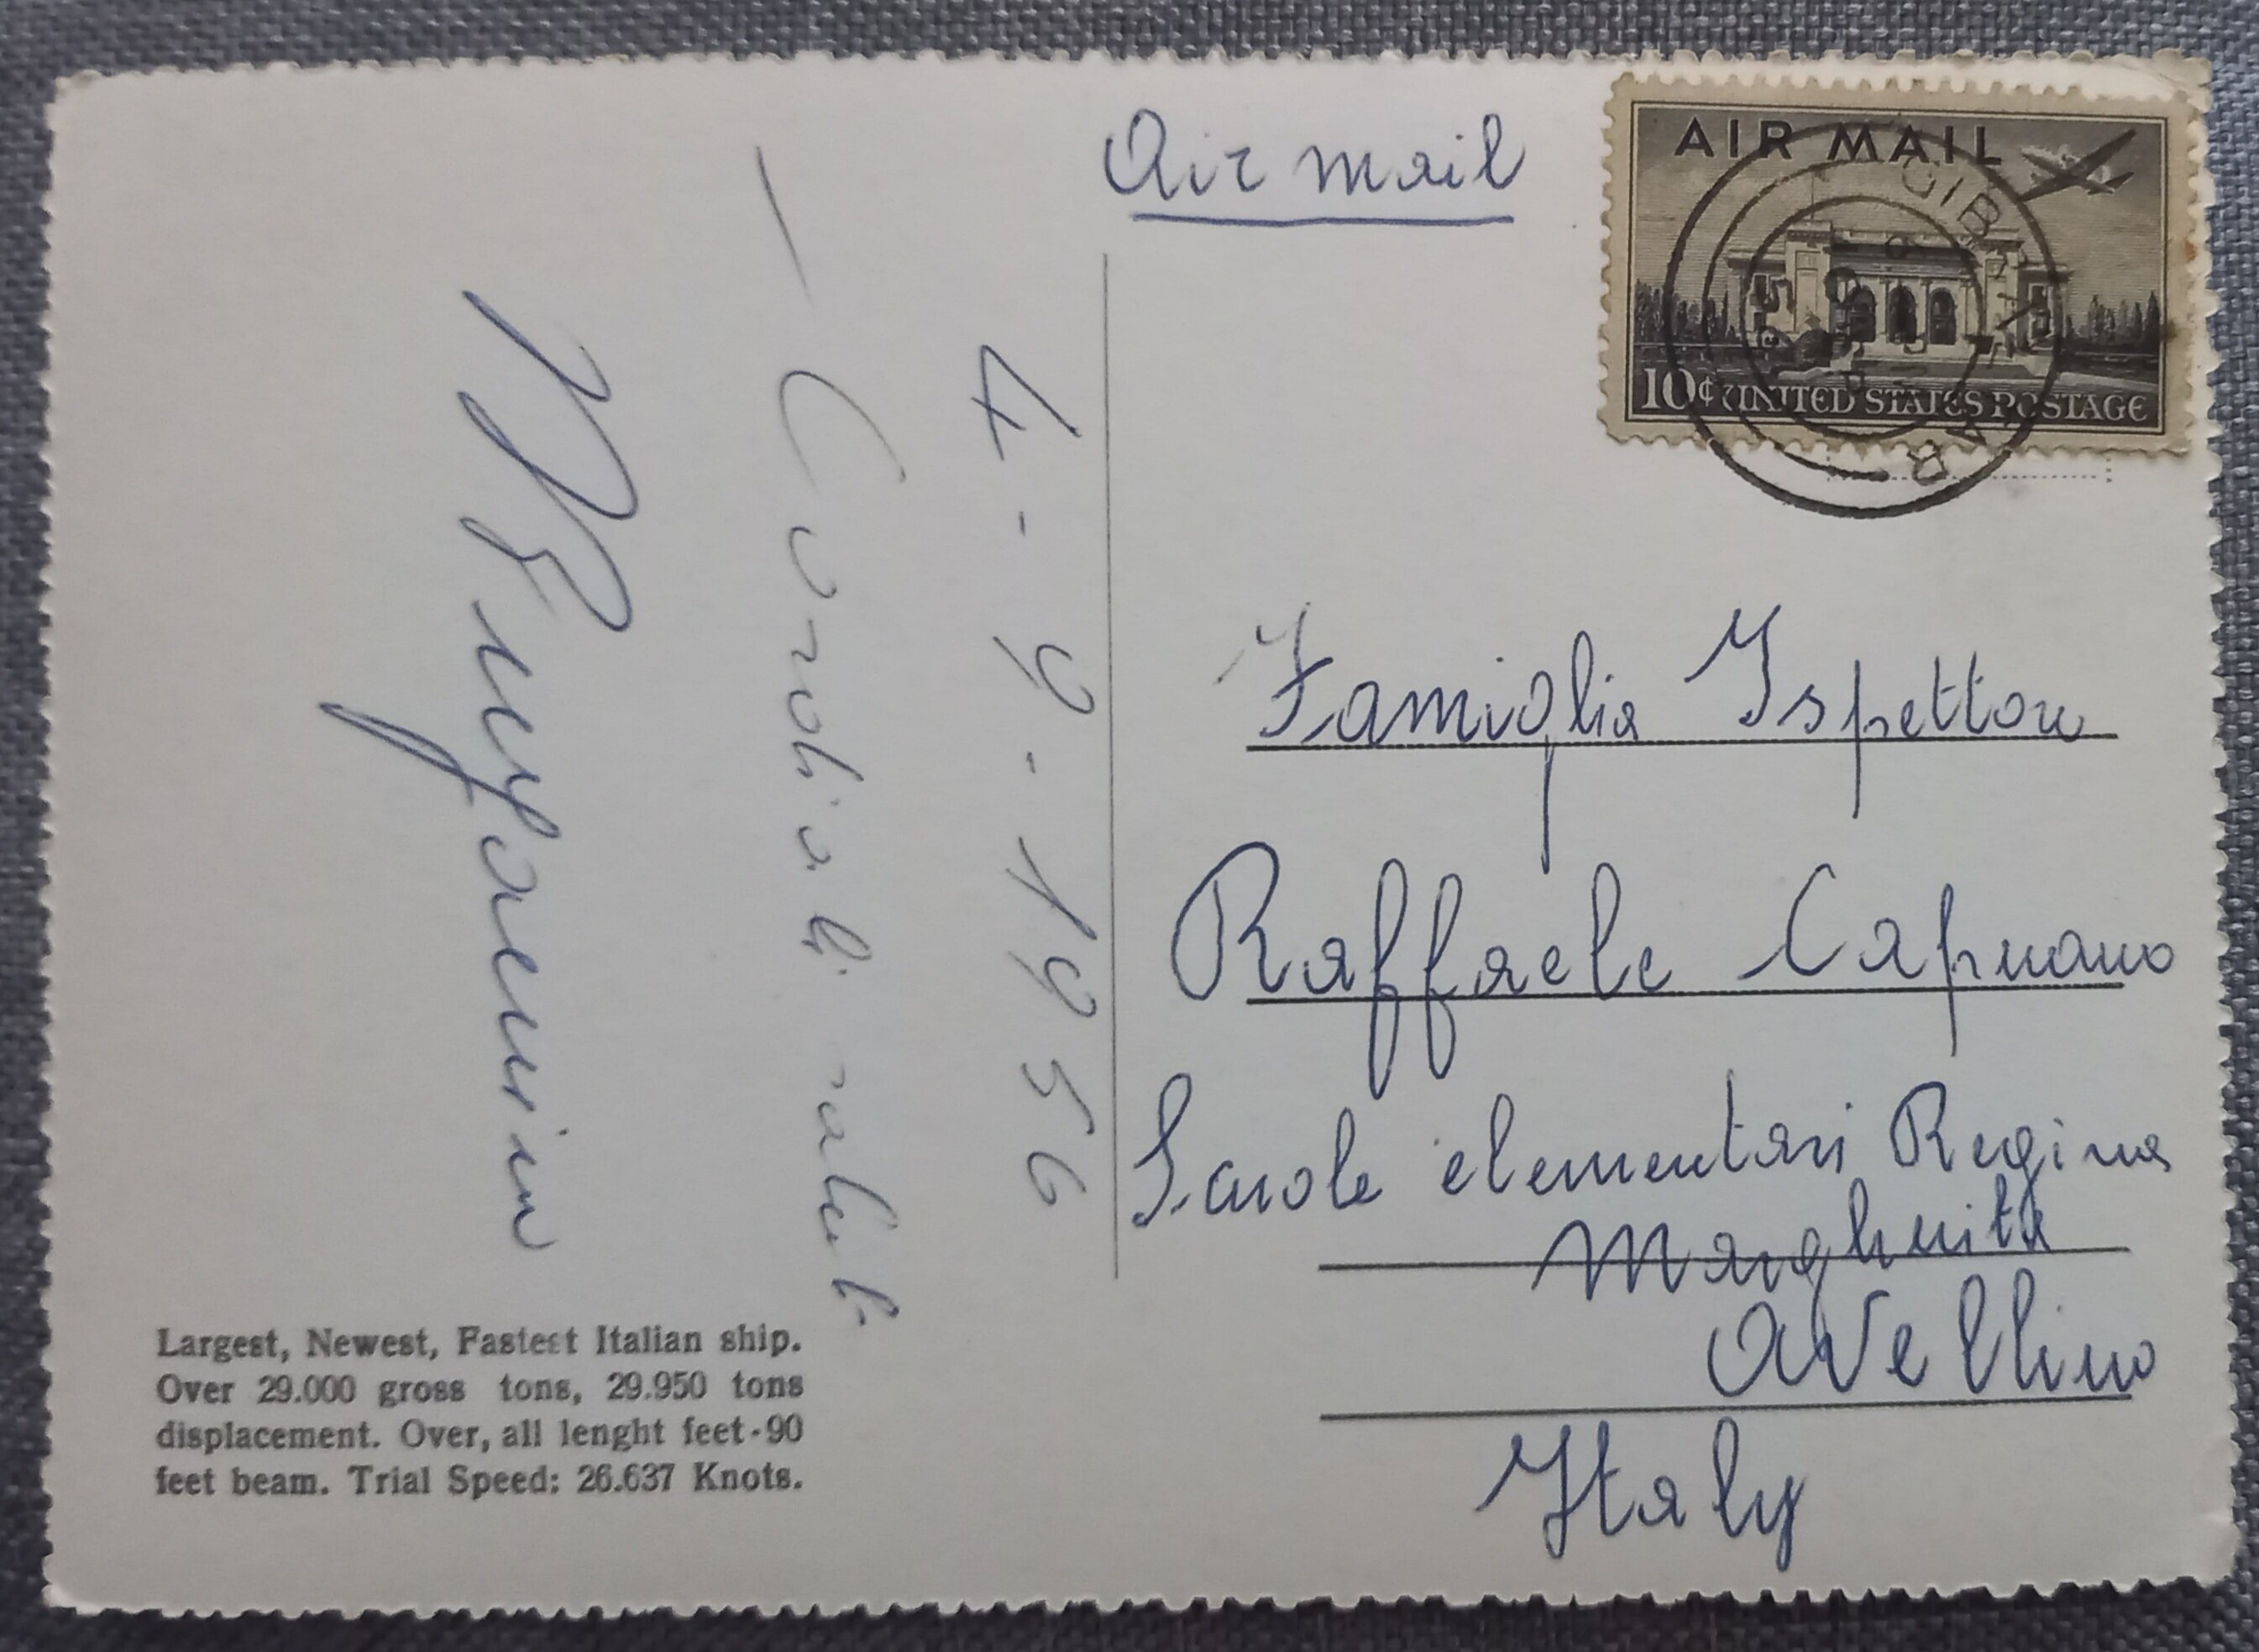 Air mail
AIR MAIL
10¢ UNITED STATES POSTAGE
GIBRALTAR
4-9-1956
Cordiali saluti
Famiglia Ispettore
Raffaele Capuano
Scuole elementari Regina
Margherita
Avellino
Italy
Largest, Newest, Fastest Italian ship.
Over 29.000 gross tons, 29.950 tons
displacement. Over, all lenght feet-90
feet beam. Trial Speed: 26.637 Knots.